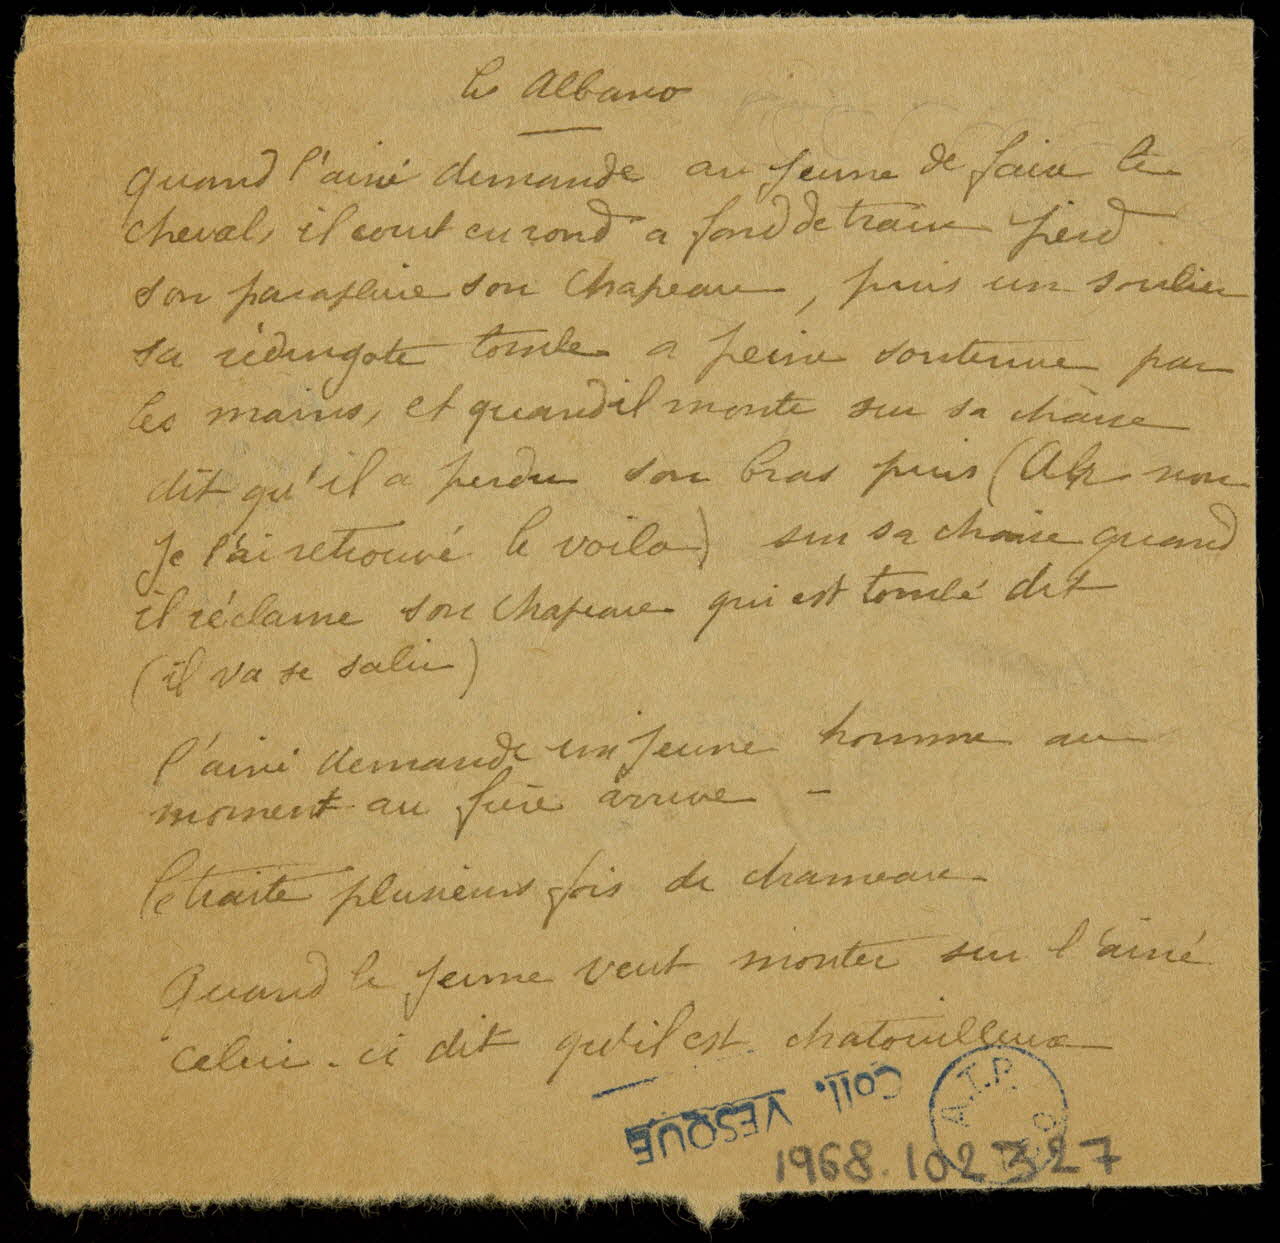 les Albano
Quand l'ainé demande au jeune de faire le
cheval, il court en rond a fond de train perd
son parapluie son chapeau, puis un soulier
sa rédingote tombe a peine soutenue par
les mains, et quand il monte sur sa chaise
dit qu'il a perdu son bras puis (Ah non
je l'ai retrouvé le voila) sur sa chaise quand
il réclame son chapeau qui est tombé dit
(il va se salir)
l'ainé demande un jeune homme au
moment au frère arrive -
le traite plusieurs fois de chameau
Quand le jeune veut monter sur l'ainé
celui-ci dit qu'il est chatouilleux
Coll. VESQUE
A.T.P.
1968.102 327